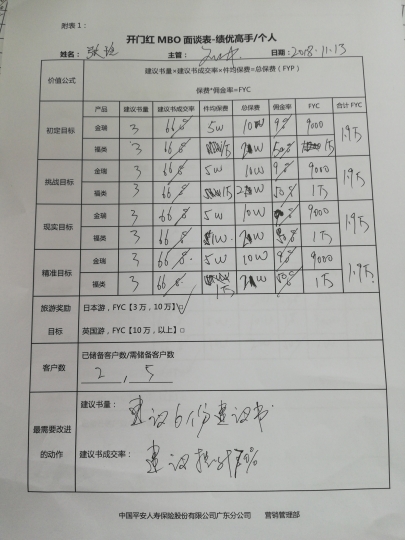 附表1：
开门红 MBO 面谈表-绩优高手/个人
姓名： 主管： 日期：2018.11.13
价值公式
建议书量×建议书成交率×件均保费=总保费（FYP）
保费*佣金率=FYC
产品 建议书量 建议书成交率 件均保费 总保费 佣金率 FYC 合计 FYC
初定目标 金瑞 3 66% 5w 10w 9% 9000 1.9万
福类 3 66% 50% 1万
挑战目标 金瑞 3 66% 5w 10w 9% 9000 1.9万
福类 3 66% 50% 1万
现实目标 金瑞 3 66% 5w 10w 9000 1.9万
福类 3 66% 1w 50% 1万
精准目标 金瑞 3 66% 5w 10w 9% 9000 1.9万
福类 3 66% 1万 50% 1万
旅游奖励目标
日本游，FYC【3万，10万】
英国游，FYC【10万，以上】□
客户数
已储备客户数/需储备客户数
2 , 5
最需要改进的动作
建议书量：
建议6份建议书
建议书成交率：
建议提升70%
中国平安人寿保险股份有限公司广东分公司 营销管理部